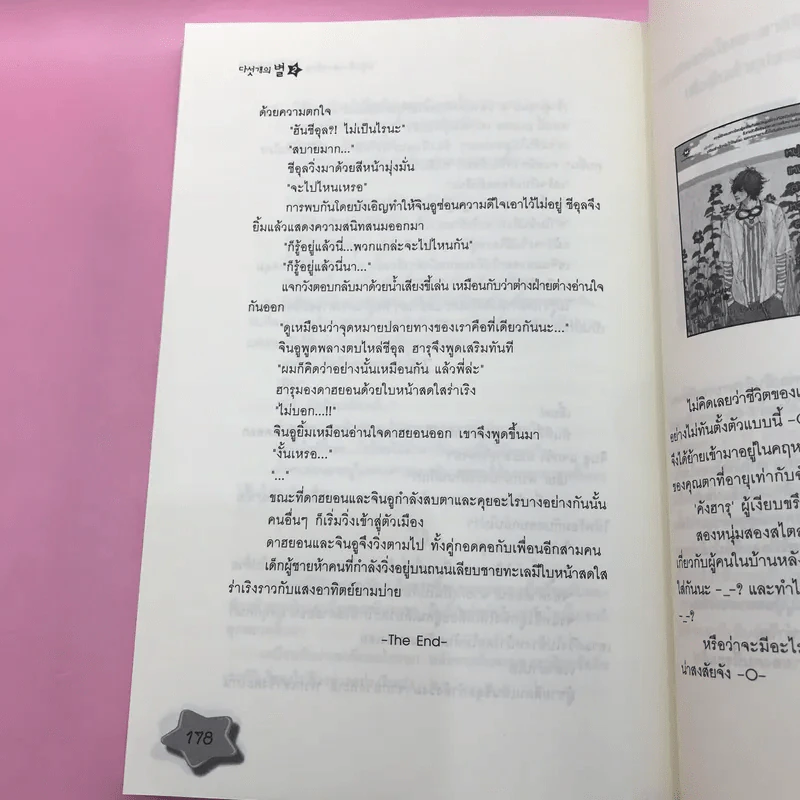 다섯개의 별 2
ด้วยความตกใจ
"ฮันชีอุล?! ไม่เป็นไรนะ"
"สบายมาก..."
ชีอุลวิ่งมาด้วยสีหน้ามุ่งมั่น
"จะไปไหนเหรอ"
การพบกันโดยบังเอิญทำให้จินอูซ่อนความดีใจเอาไว้ไม่อยู่ ชีอุลจึง
ยิ้มแล้วแสดงความสนิทสนมออกมา
"ก็รู้อยู่แล้วนี่...พวกแกล่ะจะไปไหนกัน"
"ก็รู้อยู่แล้วนี่นา..."
แจกวังตอบกลับมาด้วยน้ำเสียงขี้เล่น เหมือนกับว่าต่างฝ่ายต่างอ่านใจ
กันออก
"ดูเหมือนว่าจุดหมายปลายทางของเราคือที่เดียวกันนะ..."
จินอูพูดพลางตบไหล่ชีอุล ฮารุจึงพูดเสริมทันที
"ผมก็คิดว่าอย่างนั้นเหมือนกัน แล้วพี่ล่ะ"
ฮารุมองดาฮยอนด้วยใบหน้าสดใสร่าเริง
"ไม่บอก...!!"
จินอูยิ้มเหมือนอ่านใจดาฮยอนออก เขาจึงพูดขึ้นมา
"งั้นเหรอ..."
"..."
ขณะที่ดาฮยอนและจินอูกำลังสบตาและคุยอะไรบางอย่างกันนั้น
คนอื่นๆ ก็เริ่มวิ่งเข้าสู่ตัวเมือง
ดาฮยอนและจินอูจึงวิ่งตามไป ทั้งคู่กอดคอกับเพื่อนอีกสามคน
เด็กผู้ชายห้าคนที่กำลังวิ่งอยู่บนถนนเลียบชายทะเลมีใบหน้าสดใส
ร่าเริงราวกับแสงอาทิตย์ยามบ่าย
-The End-
178
ไม่คิดเลยว่าชีวิตของ
อย่างไม่ทันตั้งตัวแบบนี้ -O
จึงได้ย้ายเข้ามาอยู่ในคฤห
ของคุณตาที่อายุเท่ากับ
'คังฮารุ' ผู้เงียบขรึ
สองหนุ่มสองสไตล
เกี่ยวกับผู้คนในบ้านหลัง
ใส่กันนะ -_-? และทำไ
-_-?
หรือว่าจะมีอะไร
น่าสงสัยจัง -O-